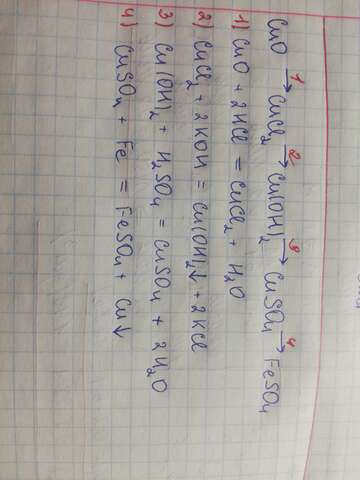 CuO →¹ CuCl₂ →² Cu(OH)₂ →³ CuSO₄ →⁴ FeSO₄
1) CuO + 2HCl = CuCl₂ + H₂O
2) CuCl₂ + 2KOH = Cu(OH)₂↓ + 2KCl
3) Cu(OH)₂ + H₂SO₄ = CuSO₄ + 2H₂O
4) CuSO₄ + Fe = FeSO₄ + Cu↓